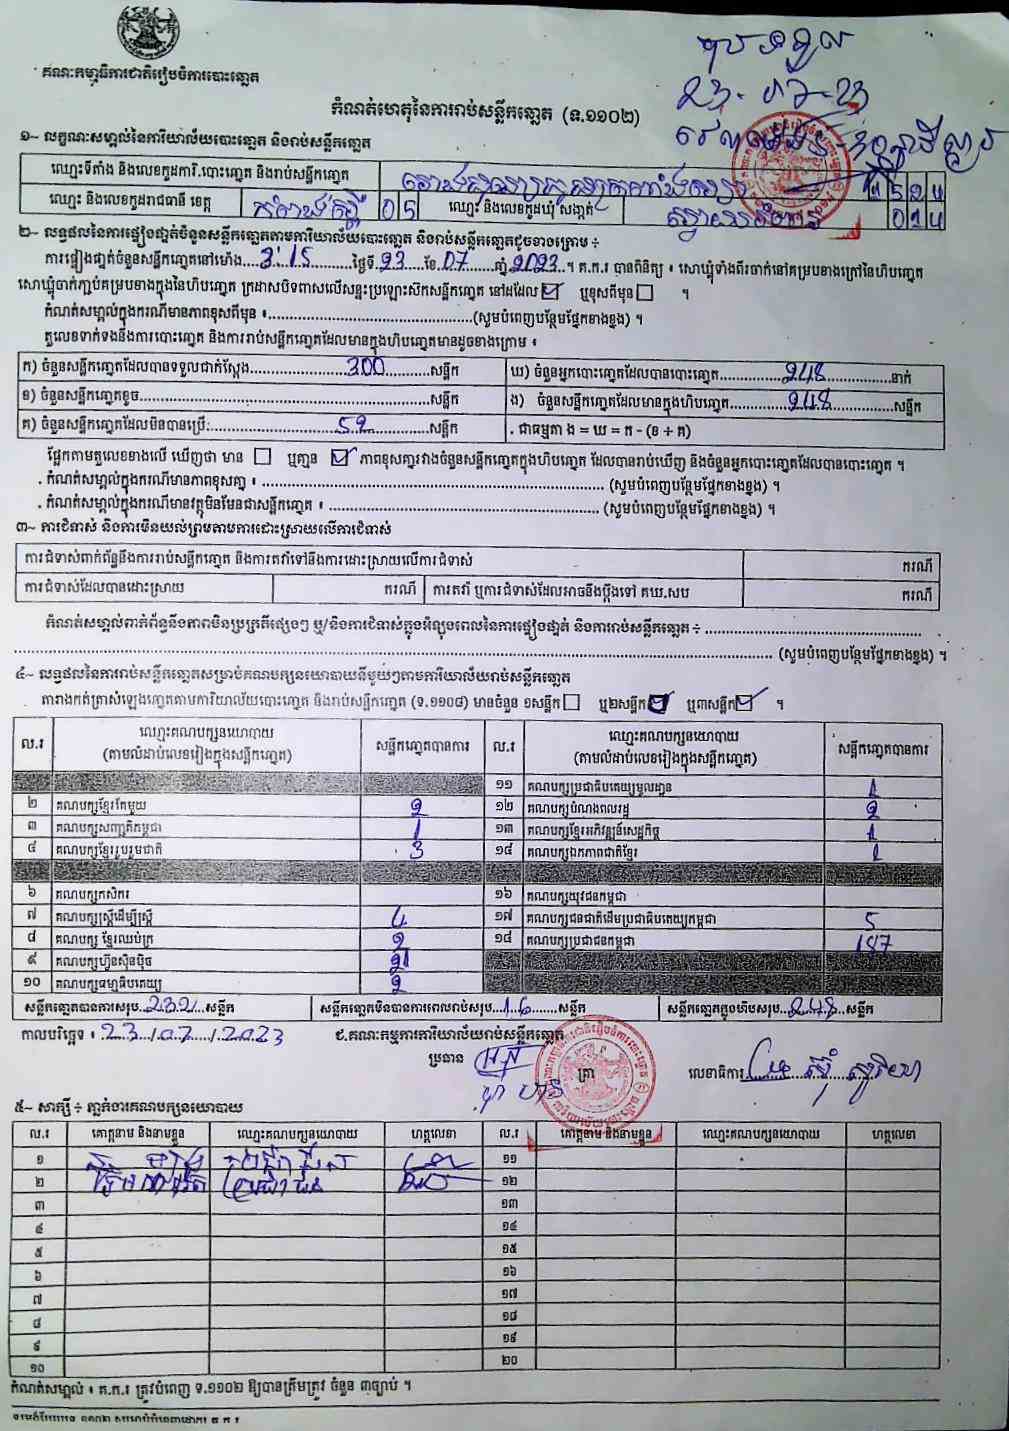 គណៈកម្មាធិការជាតិរៀបចំការបោះឆ្នោត
២៣-០៦-២៣
កំណត់ហេតុនៃការរាប់សន្លឹកឆ្នោត (ទ.១១០២)
១~ លក្ខណៈសម្គាល់នៃការិយាល័យបោះឆ្នោត និងរាប់សន្លឹកឆ្នោត
ឈ្មោះទីតាំង និងលេខកូដការិ.បោះឆ្នោត និងរាប់សន្លឹកឆ្នោត
ឈ្មោះ និងលេខកូដរាជធានី ខេត្ត កំពង់ស្ពឺ 05 ឈ្មោះ និងលេខកូដឃុំ សង្កាត់
២~ លទ្ធផលនៃការផ្ទៀងផ្ទាត់ចំនួនសន្លឹកឆ្នោតតាមការិយាល័យបោះឆ្នោត និងរាប់សន្លឹកឆ្នោតដូចខាងក្រោម ÷
ការផ្ទៀងផ្ទាត់ចំនួនសន្លឹកឆ្នោតនៅម៉ោង 3:15 ថ្ងៃទី 23 ខែ 07 ឆ្នាំ 2023 ។ គ.ក.រ បានពិនិត្យ ៖ សោឃ្មុំទាំងពីរចាក់នៅគម្របខាងក្រៅនៃហិបឆ្នោត
សោឃ្មុំចាក់ភ្ជាប់គម្របខាងក្នុងនៃហិបឆ្នោត ក្រដាសបិទពាសលើសន្ទះប្រឡោះសិកសន្លឹកឆ្នោត នៅដដែល ☑ ឬខុសពីមុន ☐ ។
កំណត់សម្គាល់ក្នុងករណីមានភាពខុសពីមុន ៖ (សូមបំពេញបន្ថែមផ្នែកខាងខ្នង) ។
តួលេខទាក់ទងនឹងការបោះឆ្នោត និងការរាប់សន្លឹកឆ្នោតដែលមានក្នុងហិបឆ្នោតមានដូចខាងក្រោម ៖
ក) ចំនួនសន្លឹកឆ្នោតដែលបានទទួលជាក់ស្តែង 300 សន្លឹក ឃ) ចំនួនអ្នកបោះឆ្នោតដែលបានបោះឆ្នោត 248 នាក់
ខ) ចំនួនសន្លឹកឆ្នោតខូច សន្លឹក ង) ចំនួនសន្លឹកឆ្នោតដែលមានក្នុងហិបឆ្នោត 248 សន្លឹក
គ) ចំនួនសន្លឹកឆ្នោតដែលមិនបានប្រើ 52 សន្លឹក . ជាធម្មតា ង = ឃ = ក - (ខ + គ)
ផ្អែកតាមតួលេខខាងលើ ឃើញថា មាន ☐ ឬគ្មាន ☑ ភាពខុសគ្នារវាងចំនួនសន្លឹកឆ្នោតក្នុងហិបឆ្នោត ដែលបានរាប់ឃើញ និងចំនួនអ្នកបោះឆ្នោតដែលបានបោះឆ្នោត ។
. កំណត់សម្គាល់ក្នុងករណីមានភាពខុសគ្នា ៖ (សូមបំពេញបន្ថែមផ្នែកខាងខ្នង) ។
. កំណត់សម្គាល់ក្នុងករណីមានវត្ថុមិនមែនជាសន្លឹកឆ្នោត ៖ (សូមបំពេញបន្ថែមផ្នែកខាងខ្នង) ។
៣~ ការជំទាស់ និងការមិនយល់ព្រមតាមការដោះស្រាយលើការជំទាស់
ការជំទាស់ពាក់ព័ន្ធនឹងការរាប់សន្លឹកឆ្នោត និងការតវ៉ាទៅនឹងការដោះស្រាយលើការជំទាស់ ករណី
ការជំទាស់ដែលបានដោះស្រាយ ករណី ការតវ៉ា ឬការជំទាស់ដែលអាចនឹងប្តឹងទៅ គឃ.សប ករណី
កំណត់សម្គាល់ពាក់ព័ន្ធនឹងភាពមិនប្រក្រតីផ្សេងៗ ឬ/និងការជំទាស់ក្នុងអំឡុងពេលនៃការផ្ទៀងផ្ទាត់ និងការរាប់សន្លឹកឆ្នោត ÷
(សូមបំពេញបន្ថែមផ្នែកខាងខ្នង) ។
៤~ លទ្ធផលនៃការរាប់សន្លឹកឆ្នោតសម្រាប់គណបក្សនយោបាយនីមួយៗតាមការិយាល័យរាប់សន្លឹកឆ្នោត
តារាងកត់ត្រាសំឡេងឆ្នោតតាមការិយាល័យបោះឆ្នោត និងរាប់សន្លឹកឆ្នោត (ទ.១១០៨) មានចំនួន ១សន្លឹក ☐ ឬ២សន្លឹក ឬ៣សន្លឹក ☑ ។
ល.រ ឈ្មោះគណបក្សនយោបាយ (តាមលំដាប់លេខរៀងក្នុងសន្លឹកឆ្នោត) សន្លឹកឆ្នោតបានការ ល.រ ឈ្មោះគណបក្សនយោបាយ (តាមលំដាប់លេខរៀងក្នុងសន្លឹកឆ្នោត) សន្លឹកឆ្នោតបានការ
១១ គណបក្សប្រជាធិបតេយ្យមូលដ្ឋាន 1
២ គណបក្សខ្មែរតែមួយ 2 ១២ គណបក្សបំណងពលរដ្ឋ 2
៣ គណបក្សសញ្ជាតិកម្ពុជា 1 ១៣ គណបក្សខ្មែរអភិវឌ្ឍន៍សេដ្ឋកិច្ច 1
៤ គណបក្សខ្មែររួបរួមជាតិ 3 ១៤ គណបក្សឯកភាពជាតិខ្មែរ 1
៦ គណបក្សកសិករ ១៦ គណបក្សយុវជនកម្ពុជា
៧ គណបក្សស្ត្រីដើម្បីស្ត្រី 4 ១៧ គណបក្សជនជាតិដើមប្រជាធិបតេយ្យកម្ពុជា 5
៨ គណបក្ស ខ្មែរឈប់ក្រ 2 ១៨ គណបក្សប្រជាជនកម្ពុជា
៩ គណបក្សហ្វ៊ុនស៊ិនប៉ិច
១០ គណបក្សធម្មាធិបតេយ្យ 2
សន្លឹកឆ្នោតបានការសរុប 232 សន្លឹក សន្លឹកឆ្នោតមិនបានការពេលរាប់សរុប 16 សន្លឹក សន្លឹកឆ្នោតក្នុងហិបសរុប 248 សន្លឹក
កាលបរិច្ឆេទ ៖ 23/07/2023 ជ.គណៈកម្មការការិយាល័យរាប់សន្លឹកឆ្នោត
ប្រធាន ត្រា លេខាធិការ
៥~ សាក្សី ÷ ភ្នាក់ងារគណបក្សនយោបាយ
ល.រ គោត្តនាម និងនាមខ្លួន ឈ្មោះគណបក្សនយោបាយ ហត្ថលេខា ល.រ គោត្តនាម និងនាមខ្លួន ឈ្មោះគណបក្សនយោបាយ ហត្ថលេខា
១ ១១
២ ប្រជាជន ១២
៣ ១៣
៤ ១៤
៥ ១៥
៦ ១៦
៧ ១៧
៨ ១៨
៩ ១៩
១០ ២០
កំណត់សម្គាល់ ៖ គ.ក.រ ត្រូវបំពេញ ទ.១១០២ ឱ្យបានត្រឹមត្រូវ ចំនួន ៣ច្បាប់ ។